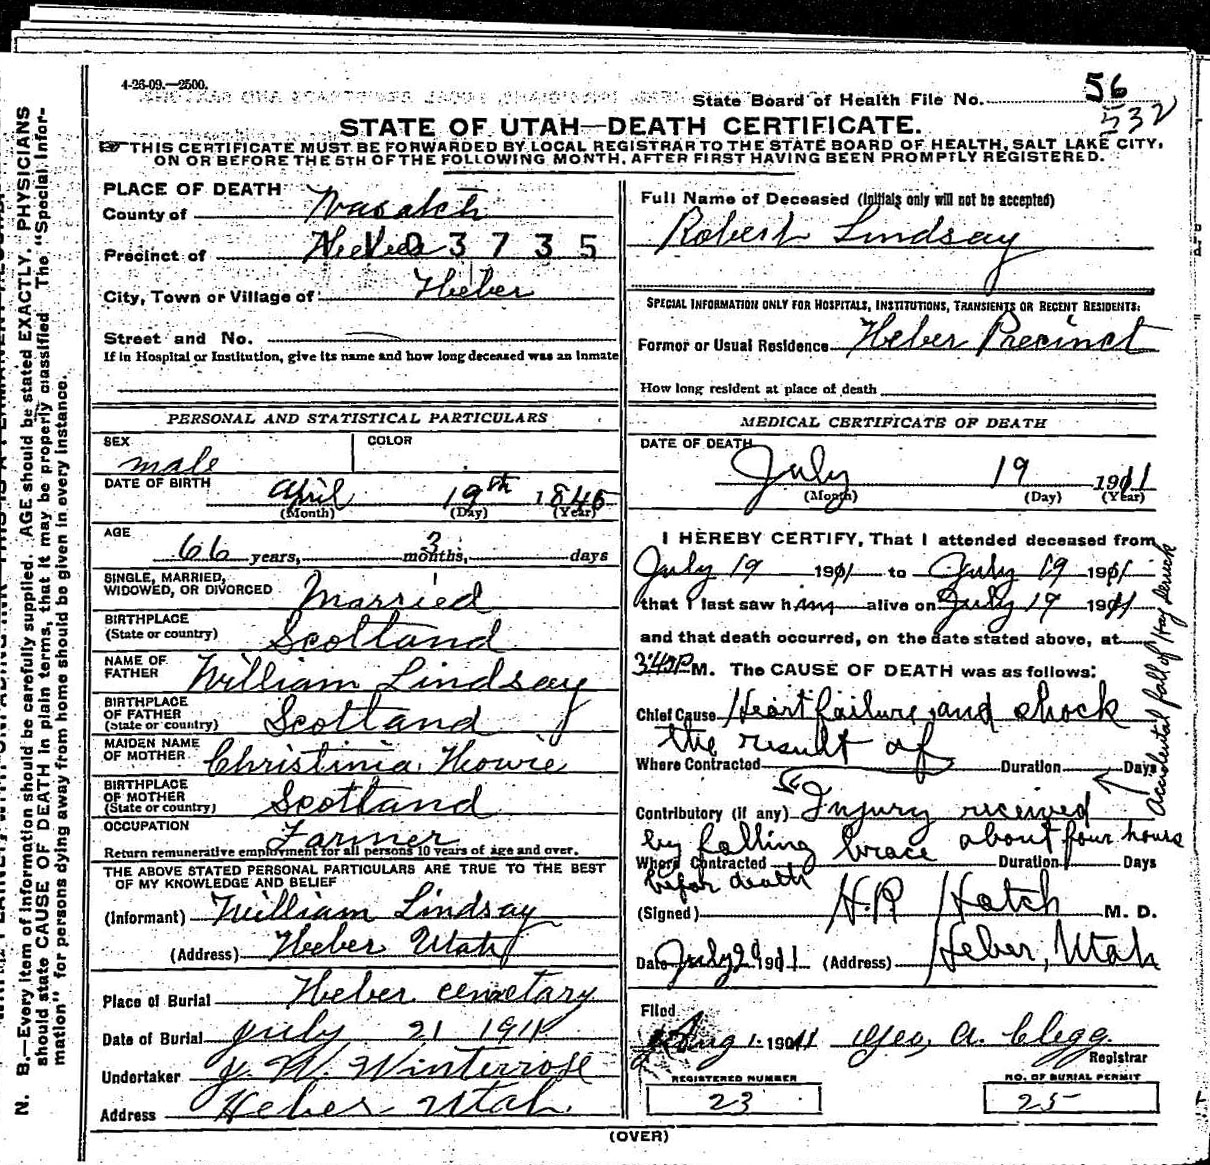 4-26-09.—2500.
State Board of Health File No. 56
532
STATE OF UTAH—DEATH CERTIFICATE.
THIS CERTIFICATE MUST BE FORWARDED BY LOCAL REGISTRAR TO THE STATE BOARD OF HEALTH, SALT LAKE CITY,
ON OR BEFORE THE 5TH OF THE FOLLOWING MONTH, AFTER FIRST HAVING BEEN PROMPTLY REGISTERED.
PLACE OF DEATH
County of Wasatch
Precinct of Heber 3735
City, Town or Village of Heber
Street and No.
If in Hospital or Institution, give its name and how long deceased was an inmate
PERSONAL AND STATISTICAL PARTICULARS
SEX male COLOR
DATE OF BIRTH April 19th 1845
(Month) (Day) (Year)
AGE 66 years, 3 months, days
SINGLE, MARRIED, WIDOWED, OR DIVORCED Married
BIRTHPLACE (State or country) Scotland
NAME OF FATHER William Lindsay
BIRTHPLACE OF FATHER (State or country) Scotland
MAIDEN NAME OF MOTHER Christinia Howie
BIRTHPLACE OF MOTHER (State or country) Scotland
OCCUPATION Farmer
Return remunerative employment for all persons 10 years of age and over.
THE ABOVE STATED PERSONAL PARTICULARS ARE TRUE TO THE BEST
OF MY KNOWLEDGE AND BELIEF
(Informant) William Lindsay
(Address) Heber Utah
Place of Burial Heber cemetary
Date of Burial July 21 1911
Undertaker J. W. Winterrose
Address Heber Utah
Full Name of Deceased (Initials only will not be accepted)
Robert Lindsay
SPECIAL INFORMATION ONLY FOR HOSPITALS, INSTITUTIONS, TRANSIENTS OR RECENT RESIDENTS:
Former or Usual Residence Heber Precinct
How long resident at place of death
MEDICAL CERTIFICATE OF DEATH
DATE OF DEATH
July 19 1911
(Month) (Day) (Year)
I HEREBY CERTIFY, That I attended deceased from
July 19 1911 to July 19 1911
that I last saw him alive on July 19 1911
and that death occurred, on the date stated above, at
3:40 P M. The CAUSE OF DEATH was as follows:
Chief Cause Heart failure and shock
the result of
Where Contracted Duration Days
Contributory (if any) Injury received
by falling brace about four hours
Where Contracted Duration Days
befor death
(Signed) H.R. Hatch M. D.
Date July 29 1911 (Address) Heber, Utah
Accidental fall of Hay Derrick
Filed
Aug 1. 1911 Geo. A. Clegg.
Registrar
REGISTERED NUMBER
23
NO. OF BURIAL PERMIT
25
(OVER)
N. B.—Every item of information should be carefully supplied. AGE should be stated EXACTLY. PHYSICIANS
should state CAUSE OF DEATH in plain terms, that it may be properly classified. The "Special Infor-
mation" for persons dying away from home should be given in every instance.